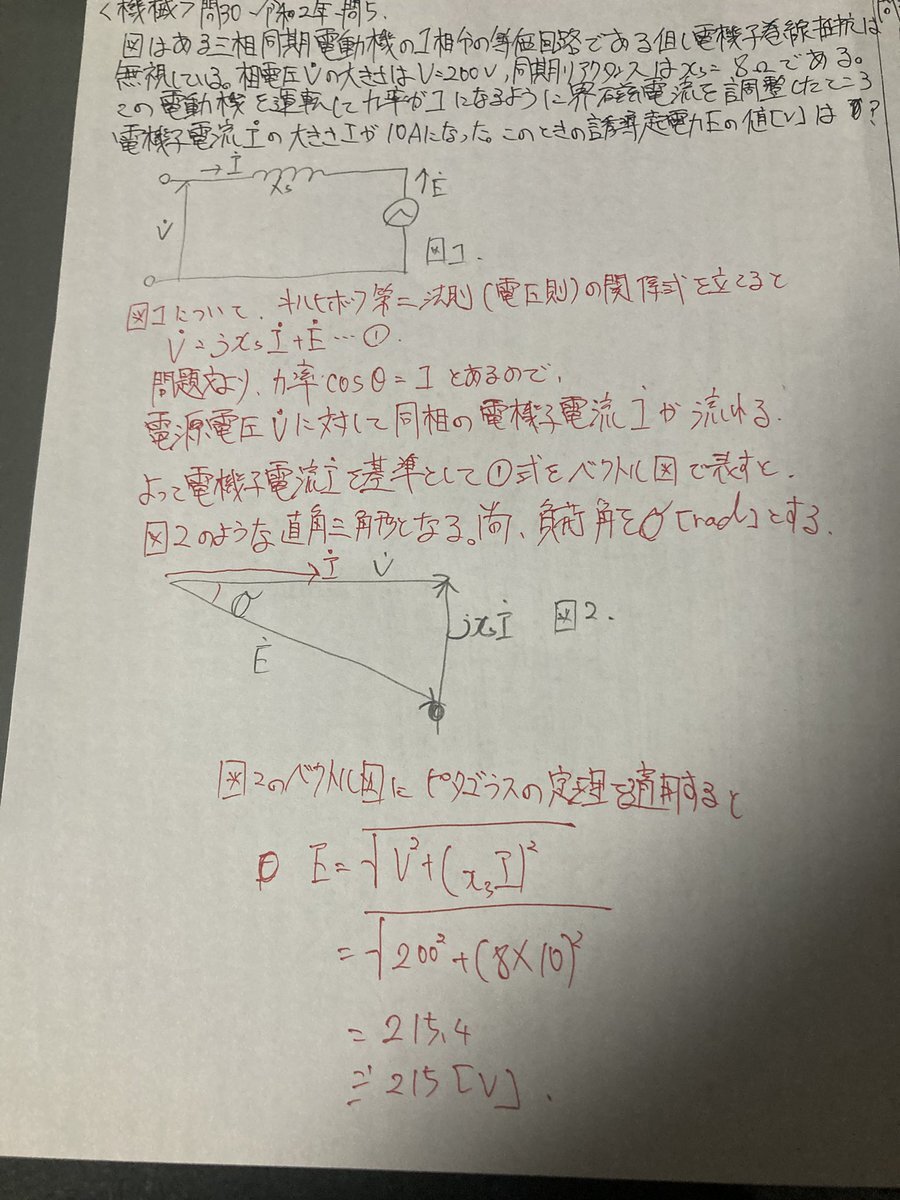 <機械>問30 令和2年 問5.
図はある三相同期電動機の1相分の等価回路である但し電機子巻線抵抗は
無視している。相電圧V̇の大きさはV=200V,同期リアクタンスはxs=8Ωである。
この電動機を運転して力率が1になるように界磁電流を調整したところ
電機子電流İの大きさIが10Aになった。このときの誘導起電力Eの値[V]は?
→ İ
xs
↑Ė
V̇
図1.
図1について、キルヒホッフ第二法則(電圧則)の関係式を立てると
V̇=jxsİ+Ė…①.
問題文より、力率cosθ=1とあるので、
電源電圧V̇に対して同相の電機子電流İが流れる.
よって電機子電流İを基準として①式をベクトル図で表すと、
図2のような直角三角形となる。尚、負荷角をδ[rad]とする.
İ V̇
δ
jxsİ
図2.
Ė
図2のベクトル図にピタゴラスの定理を適用すると
E=√V²+(xsI)²
=√200²+(8×10)²
=215.4
≒215[V].